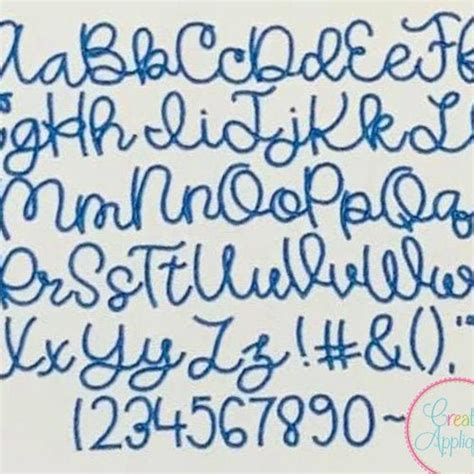 AaBbCcDdEeFf
gHhIiJjKkL
MmNnOoPpQq
RrSsTtUuVvWw
XxYyZz!#&(),"
1234567890~
Creat
Appliq